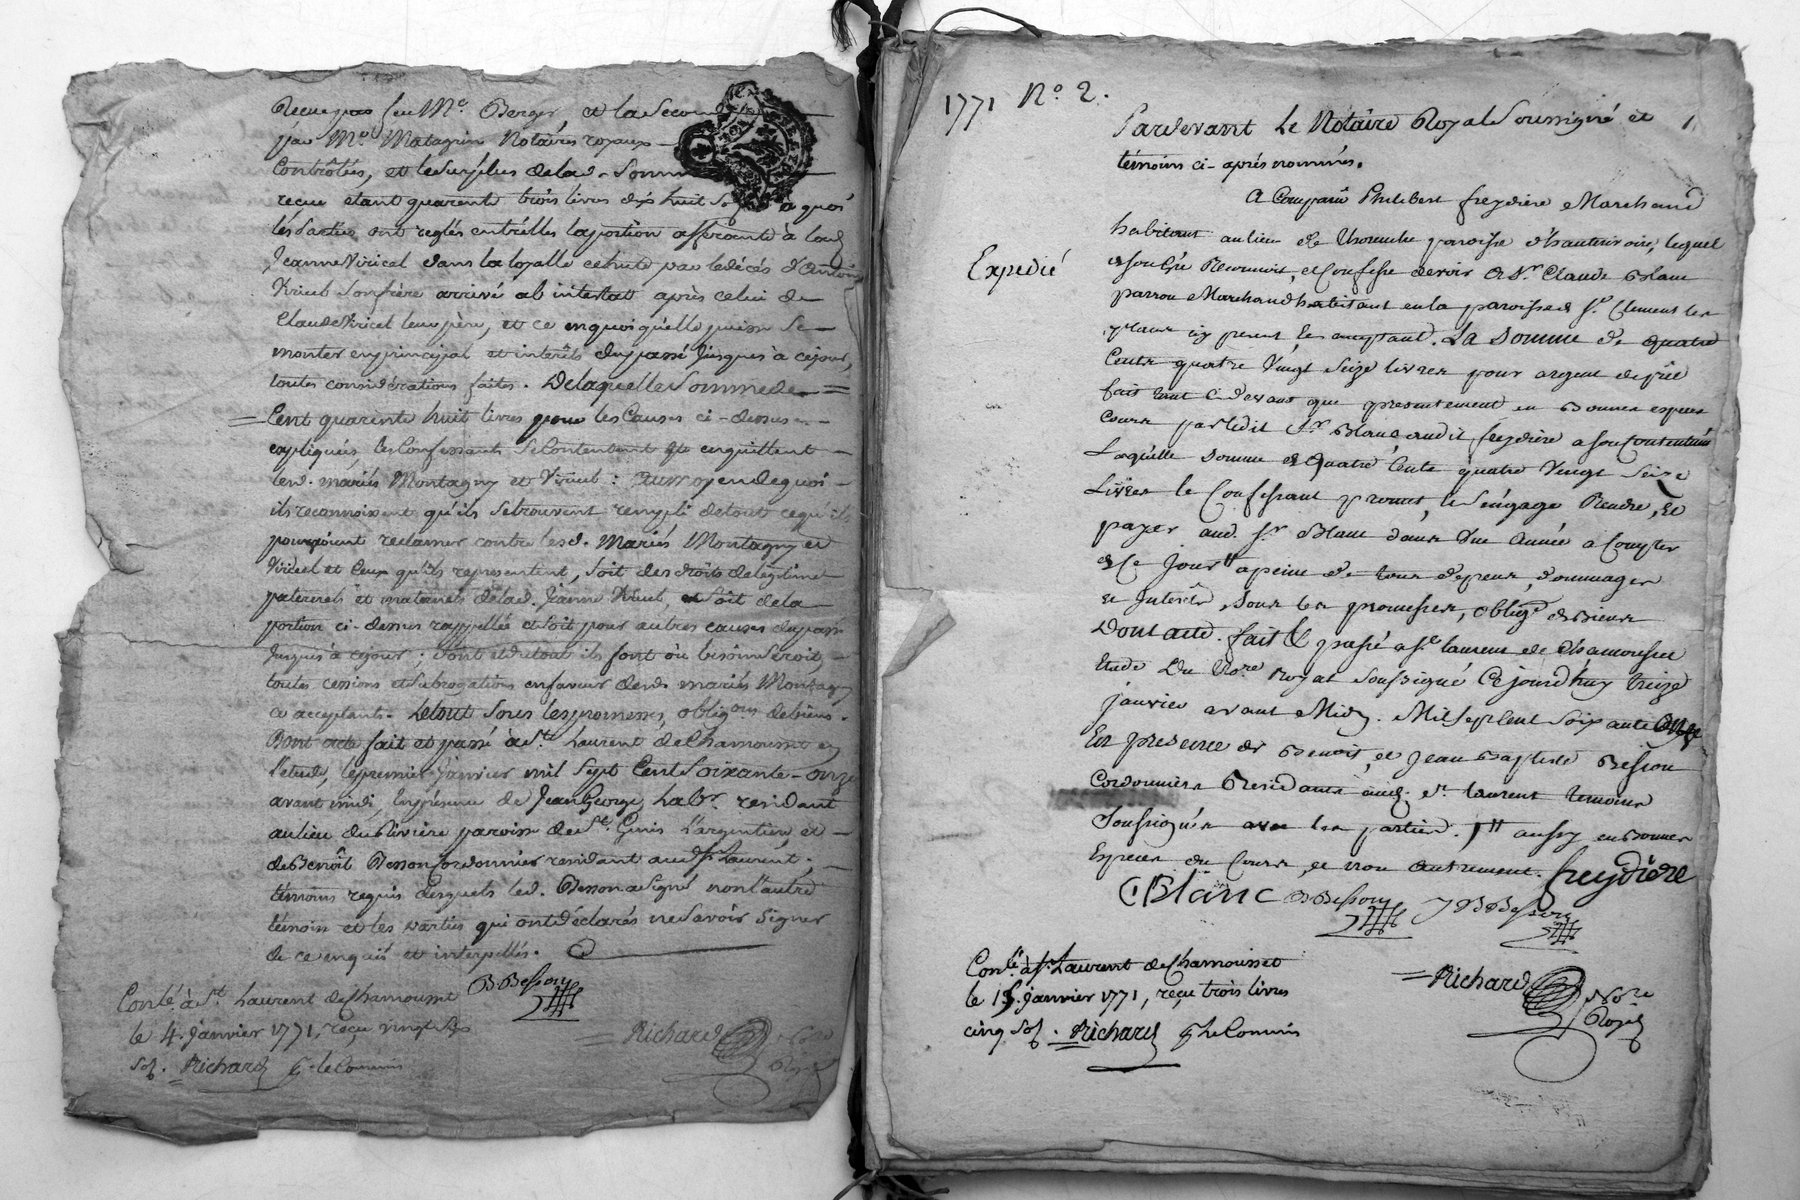 Recue par feu Me. Berger, et la Seconde
par Me. Matagrin Notaires royaux
Contrôlées, et le Surplus de lad. Somme
reçue etant quarente trois livres dix huit Sols a quoi
les Parties ont reglés entr'elles la portion afferante à lad.
Jeanne Viricel dans la
Viricel Son frère arrivé ab intestat après celui de
Claude Viricel leur père, et ce en quoi qu'elle puisse Se
monter en principal et interêts du passé Jusques à ce jour,
toutes considérations faites. De laquelle Somme de
Cent quarente huit livres pour les Causes ci-dessus
expliquées, les Confessants Se Contentent et en quittent
lesd. mariés Montagny et Viricel : Au moyen de quoi
ils reconnoissent qu'ils Se trouvent rempli de tout ce qu'ils
pourroient reclamer contre lesd. Mariés Montagny et
Viricel et Ceux qu'ils representent, Soit des droits de legitime
paternels et maternels de lad. Jeanne Viricel, Soit de la
portion ci-dessus rappellée et Soit pour autres causes du passé
Jusqu'à ce jour ; dont et du tout ils font où besoin Seroit
toutes cessions et Subrogations en faveur desd. mariés Montagny
ce acceptants. Le tout Sous les promesses, obligons. de biens.
Dont acte fait et passé à St. Laurent de Chamousset en
l'etude, le premier Janvier mil Sept Cent Soixante-onze
avant midi, En présence de Jean George, habt. residant
au lieu du Rivière paroisse de St. Genis L'argentiere, et
de Benoît Besson Cordonnier residant aud. St. Laurent,
témoins requis desquels led. Besson a Signé non l'autre
témoin et les parties qui ont déclarés ne Savoir Signer
de ce enquis et interpellés.
BBesson
Conlé. à St. Laurent de Chamousset
le 4. Janvier 1771, reçu vingt Six
Sols. Richard Commis
Richard Nore
Royal
1771 No. 2.
Pardevant Le Notaire Royal Soussigné et
témoins ci-après nommés.
A Comparu Philibert freydiere Marchand
habitant au lieu de paroisse d'hauterivoire, lequel
Expedié
de Son gré Reconnoit, et Confesse devoir a Sr. Claude Blanc
parrou Marchand habitant en la paroisse de St. Clement les
places icy present, et acceptant. La Somme de quatre
Cents quatre Vingt Seize livres pour argent de prêt
fait tant ci devant que presentement en Bonnes especes
Cours par ledit Sr. Blanc audit freydiere a Son Contentement
Laquelle Somme de Quatre Cents quatre Vingt Seize
Livres le Confessant promet, et S'engage Rendre, Et
payer aud. Sr. Blanc dans Une Année a Compter
de Ce Jour // a peine de tous depens, dommages
et Interêts, Sous les promesses, oblige. de Biens
Dont acte. fait & passé a St. laurent de Chamousset
Etude Du Nore. Royal Soussigné Ce jourd'huy treize
janvier avant Midy. Mil Sept Cent Soixante Onze
En presence de Benoit, et Jean Baptiste Besson
Cordonniers Residants aud. St. laurent temoins
Soussignés avec les parties. // aussy en Bonnes
Especes du Cours, et non autrement. freydiere
CBlanc BBesson JBBesson
Conlé. à St. Laurent de Chamousset
le 15. Janvier 1771, reçu trois livres
cinq Sols. Richard Commis
Richard Nore
Royal